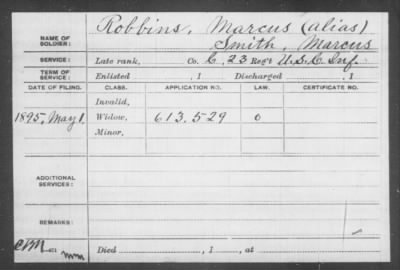 NAME OF SOLDIER: Robbins, Marcus (alias)
Smith, Marcus
SERVICE: Late rank, Co. C, 23 Reg't U.S.C. Inf.
TERM OF SERVICE: Enlisted , 1 Discharged , 1
DATE OF FILING. CLASS. APPLICATION NO. LAW. CERTIFICATE NO.
Invalid,
1895, May 1. Widow, 613.529 0
Minor,
ADDITIONAL SERVICES:
REMARKS:
Died , 1 , at